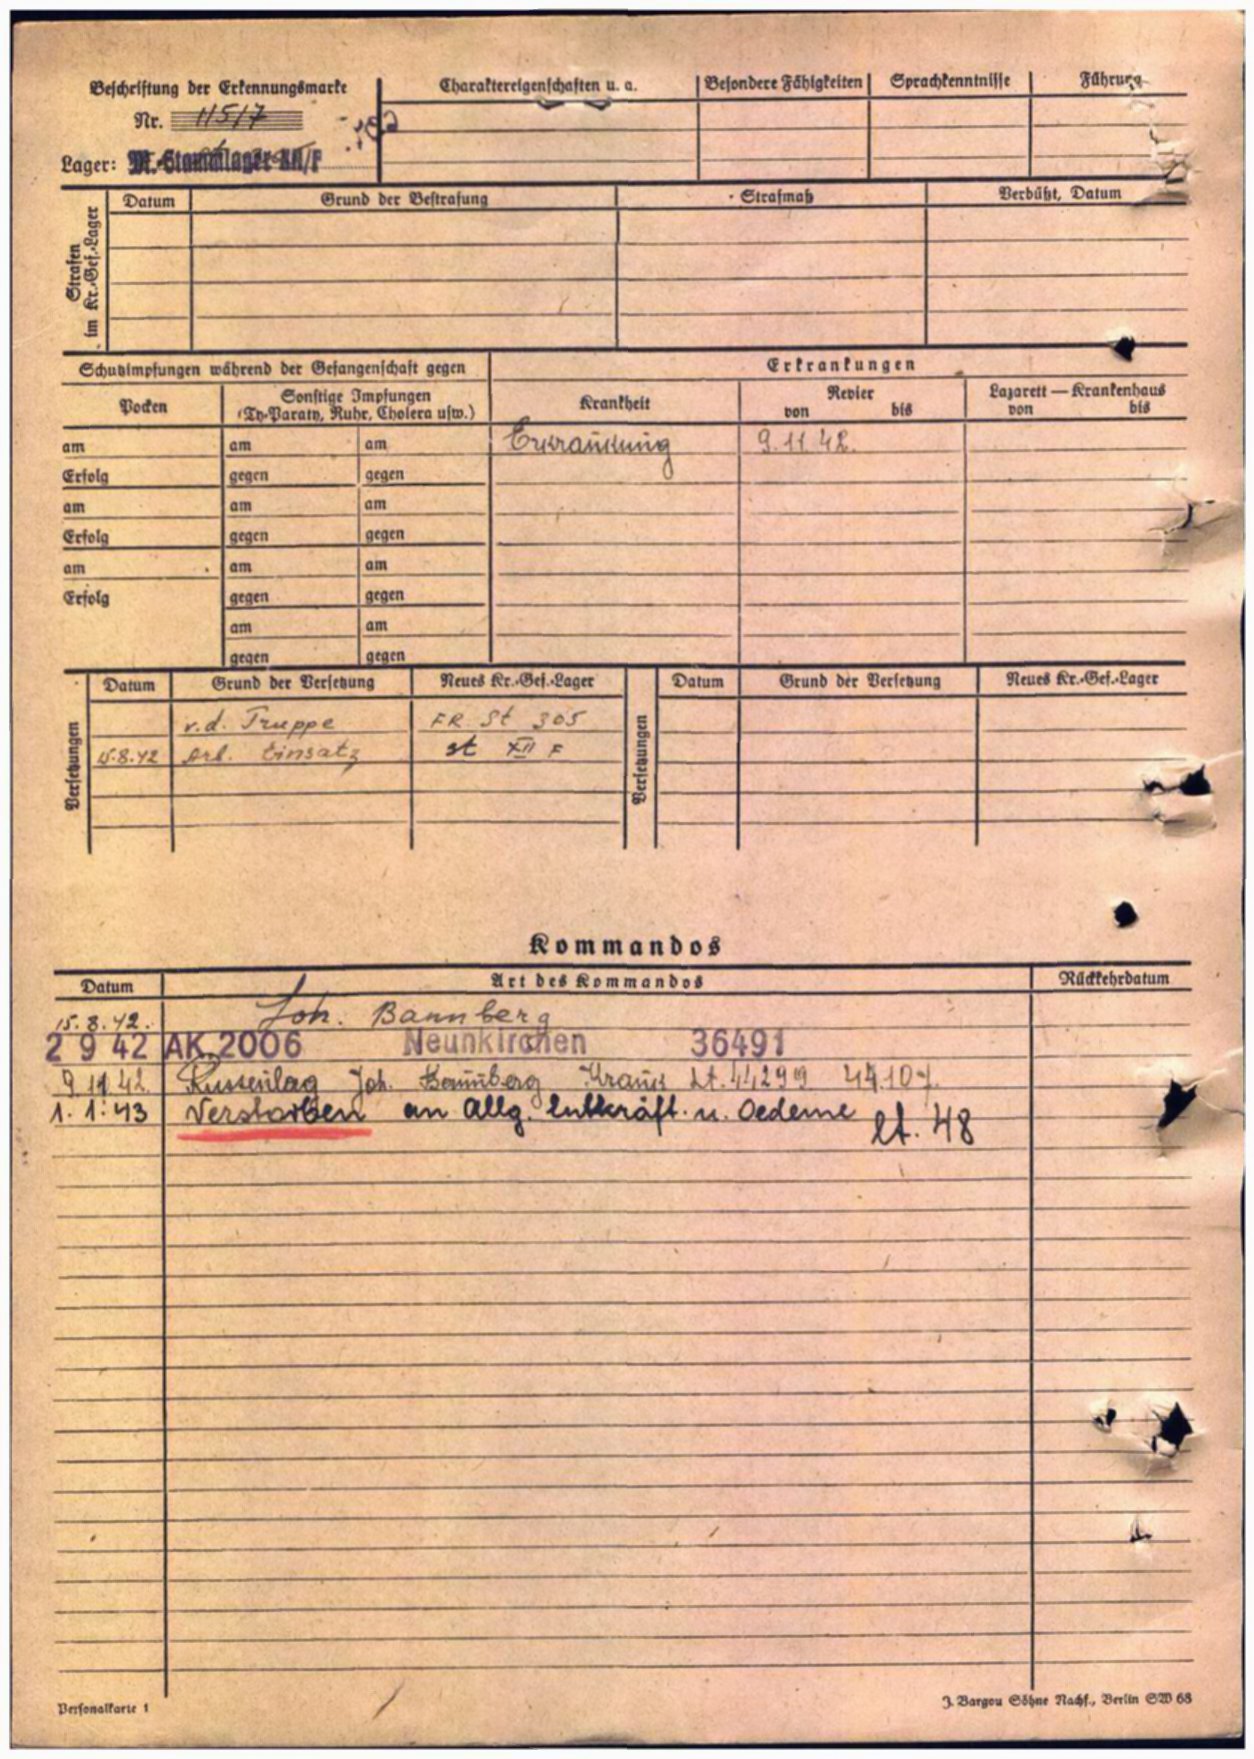 Beschriftung der Erkennungsmarke
Nr. 11517
Lager: M.-Stammlager XII/F
Charaktereigenschaften u. a.
Besondere Fähigkeiten
Sprachkenntnisse
Führung
Strafen im Kr.-Gef.-Lager
Datum Grund der Bestrafung Strafmaß Verbüßt, Datum
Schutzimpfungen während der Gefangenschaft gegen
Erkrankungen
Pocken
Sonstige Impfungen
(Ty-Paraty, Ruhr, Cholera usw.)
Krankheit
Revier
von bis
Lazarett — Krankenhaus
von bis
am am am Erkrankung 9.11.42.
Erfolg gegen gegen
am am am
Erfolg gegen gegen
am am am
Erfolg gegen gegen
am am
gegen gegen
Versetzungen
Datum Grund der Versetzung Neues Kr.-Gef.-Lager
v.d. Truppe FR. St 305
15.8.42 Arb. Einsatz St XII F
Versetzungen
Datum Grund der Versetzung Neues Kr.-Gef.-Lager
Kommandos
Datum Art des Kommandos Rückkehrdatum
15.8.42. Joh. Bannberg
2 9 42 AK.2006 Neunkirchen 36491
9.11.42. Russenlag Joh. Bannberg Krank Lt. 44299 44107.
1.1.43 Verstorben an Allg. entkräft. u. Oedeme
lt. 48
Personalkarte 1
J. Bargou Söhne Nachf., Berlin SW 68